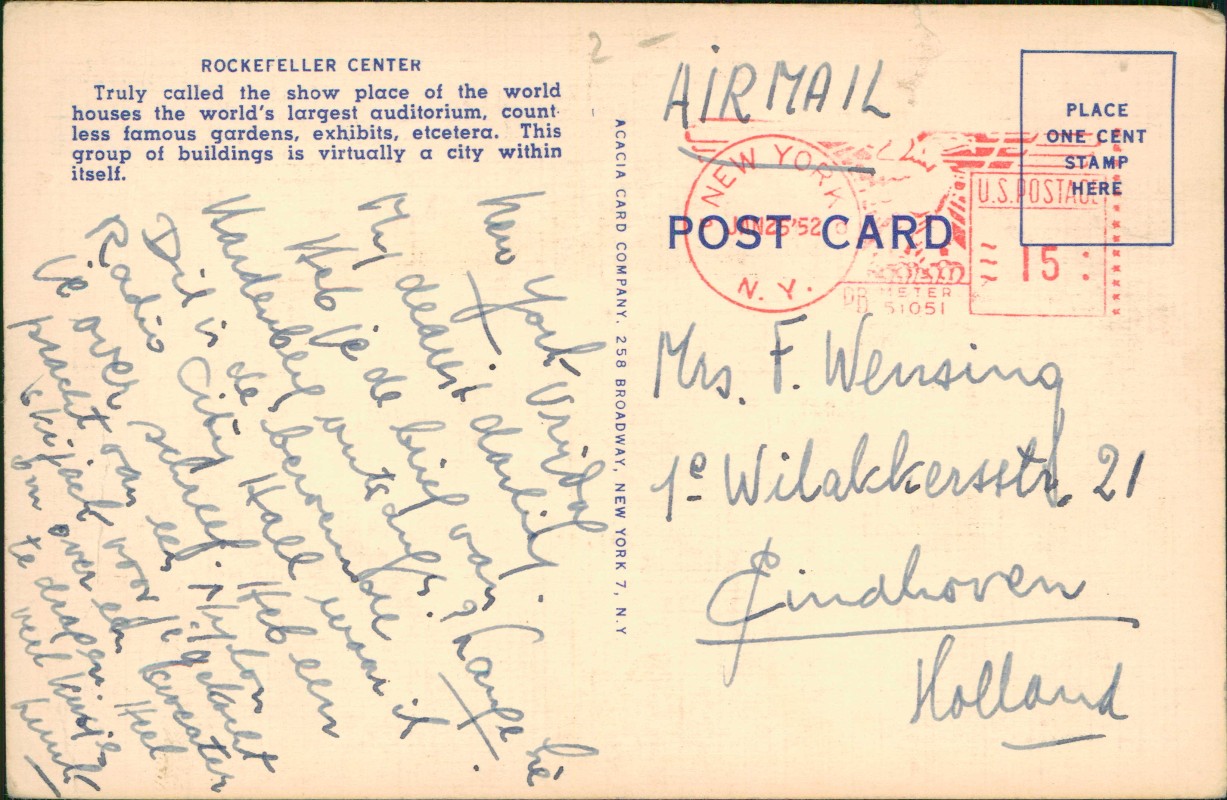 ROCKEFELLER CENTER
Truly called the show place of the world
houses the world's largest auditorium, count-
less famous gardens, exhibits, etcetera. This
group of buildings is virtually a city within
itself.
New York Vrijdag
My dearest darling.
Heb je de brief van
Hardenberg ontvangen?
Dit is de beroemde
Radio City Hall waar ik
je over schreef. Heb een
pracht van een Nylon
skijack voor je gekocht
om over een sweater
te dragen. Heel
veel kusjes
ACACIA CARD COMPANY, 258 BROADWAY, NEW YORK 7, N.Y
AIRMAIL
NEW YORK
JAN 25 '52
N. Y.
PB METER
51051
U.S. POSTAGE
15
PLACE
ONE CENT
STAMP
HERE
POST CARD
Mrs. F. Wensing
1e Wilakkersstr 21
Eindhoven
Holland